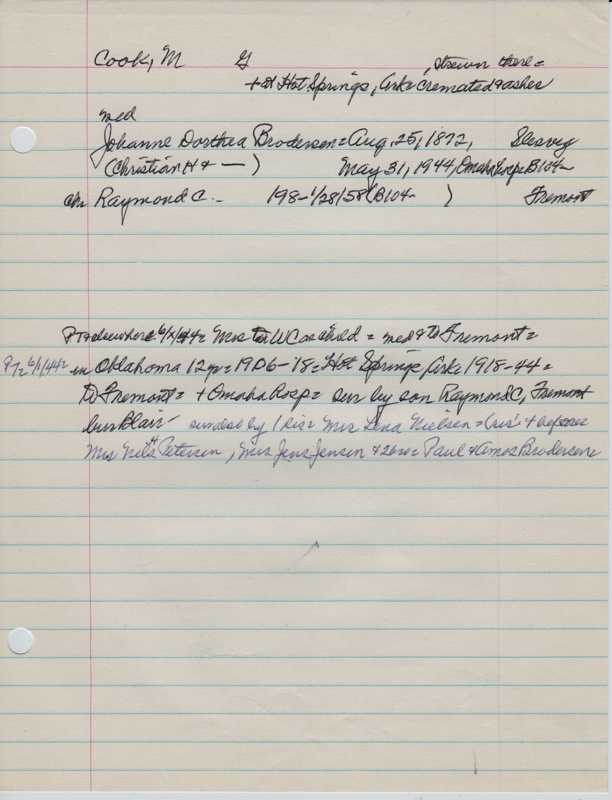 Cook, M G , strewn there =
+ at Hot Springs, Ark = cremated & ashes
med
Johanne Dorthea Brodersen = Aug. 25, 1872, Slesvig
(Christian H + — ) May 31, 1944, Omaha hosp = B104-
ch = Raymond C. - 198 - 1/28/58 (B104- ) Fremont
PT = elsewhere 6/ /44 = Mrs to WC as child = med & to Fremont =
PT = 6/1/44 = in Oklahoma 12 yr = 1906-'18 = Hot Springs, Ark = 1918-44 =
to Fremont = + Omaha hosp = sur by son Raymond C, Fremont
bur Blair survived by 1 sis = Mrs Lena Nielsen = (sis' + before
Mrs Nels H Petersen, Mrs Jens Jensen & 2 bro = Paul & Amos Brodersen =